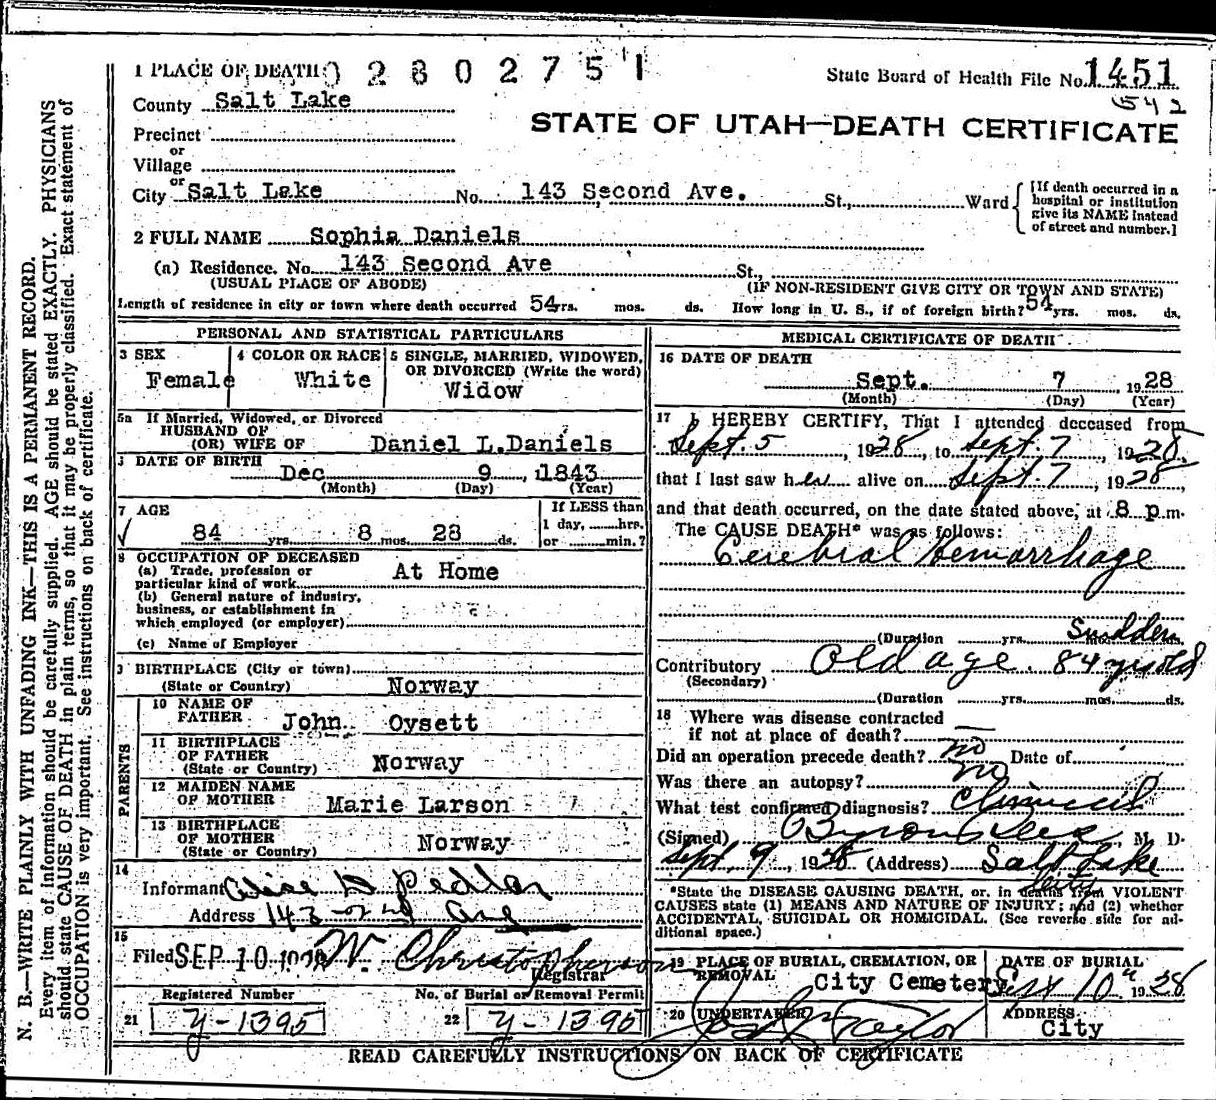 1 PLACE OF DEATH 0 2 8 0 2 7 5 1
State Board of Health File No. 1451
542
County Salt Lake
STATE OF UTAH—DEATH CERTIFICATE
Precinct
or
Village
or
City Salt Lake No. 143 Second Ave. St., Ward
[If death occurred in a hospital or institution give its NAME instead of street and number.]
2 FULL NAME Sophia Daniels
(a) Residence. No. 143 Second Ave St.,
(USUAL PLACE OF ABODE) (IF NON-RESIDENT GIVE CITY OR TOWN AND STATE)
Length of residence in city or town where death occurred 54 yrs. mos. ds. How long in U. S., if of foreign birth? 54 yrs. mos. ds.
PERSONAL AND STATISTICAL PARTICULARS
3 SEX
Female
4 COLOR OR RACE
White
5 SINGLE, MARRIED, WIDOWED, OR DIVORCED (Write the word)
Widow
5a If Married, Widowed, or Divorced
HUSBAND OF
(OR) WIFE OF Daniel L.Daniels
DATE OF BIRTH
Dec 9, 1843
(Month) (Day) (Year)
7 AGE
84 yrs. 8 mos. 28 ds.
If LESS than
1 day, hrs.
or min.?
8 OCCUPATION OF DECEASED
(a) Trade, profession or
particular kind of work At Home
(b) General nature of industry,
business, or establishment in
which employed (or employer)
(c) Name of Employer
9 BIRTHPLACE (City or town)
(State or Country) Norway
PARENTS
10 NAME OF
FATHER John Oysett
11 BIRTHPLACE
OF FATHER
(State or Country) Norway
12 MAIDEN NAME
OF MOTHER Marie Larson
13 BIRTHPLACE
OF MOTHER
(State or Country) Norway
14
Informant Alice D Pedlar
Address 143-2nd Ave
15
Filed SEP 10 1928 W. Christopherson
Registrar
Registered Number
21 y-1395
No. of Burial or Removal Permit
22 y-1395
MEDICAL CERTIFICATE OF DEATH
16 DATE OF DEATH
Sept. 7 1928
(Month) (Day) (Year)
17 I HEREBY CERTIFY, That I attended deceased from
Sept. 5, 1928, to Sept. 7, 1928.
that I last saw her alive on Sept. 7, 1928,
and that death occurred, on the date stated above, at 8 p.m.
The CAUSE DEATH* was as follows:
Cerebral Hemorrhage
(Duration yrs. Sudden
Contributory Old age. 84 yrs old
(Secondary)
(Duration yrs. mos. ds.
18 Where was disease contracted
if not at place of death? —
Did an operation precede death? no Date of
Was there an autopsy? no
What test confirmed diagnosis? Clinical
(Signed) Byron Rees, M. D.
Sept. 9, 1928 (Address) Salt Lake
City
*State the DISEASE CAUSING DEATH, or, in deaths from VIOLENT
CAUSES state (1) MEANS AND NATURE OF INJURY; and (2) whether
ACCIDENTAL, SUICIDAL OR HOMICIDAL. (See reverse side for ad-
ditional space.)
19 PLACE OF BURIAL, CREMATION, OR
REMOVAL City Cemetery
DATE OF BURIAL
Sept 10" 1928
20 UNDERTAKER
Taylor
ADDRESS
City
READ CAREFULLY INSTRUCTIONS ON BACK OF CERTIFICATE
N. B.—WRITE PLAINLY WITH UNFADING INK—THIS IS A PERMANENT RECORD.
Every item of information should be carefully supplied. AGE should be stated EXACTLY. PHYSICIANS
should state CAUSE OF DEATH in plain terms, so that it may be properly classified. Exact statement of
OCCUPATION is very important. See instructions on back of certificate.